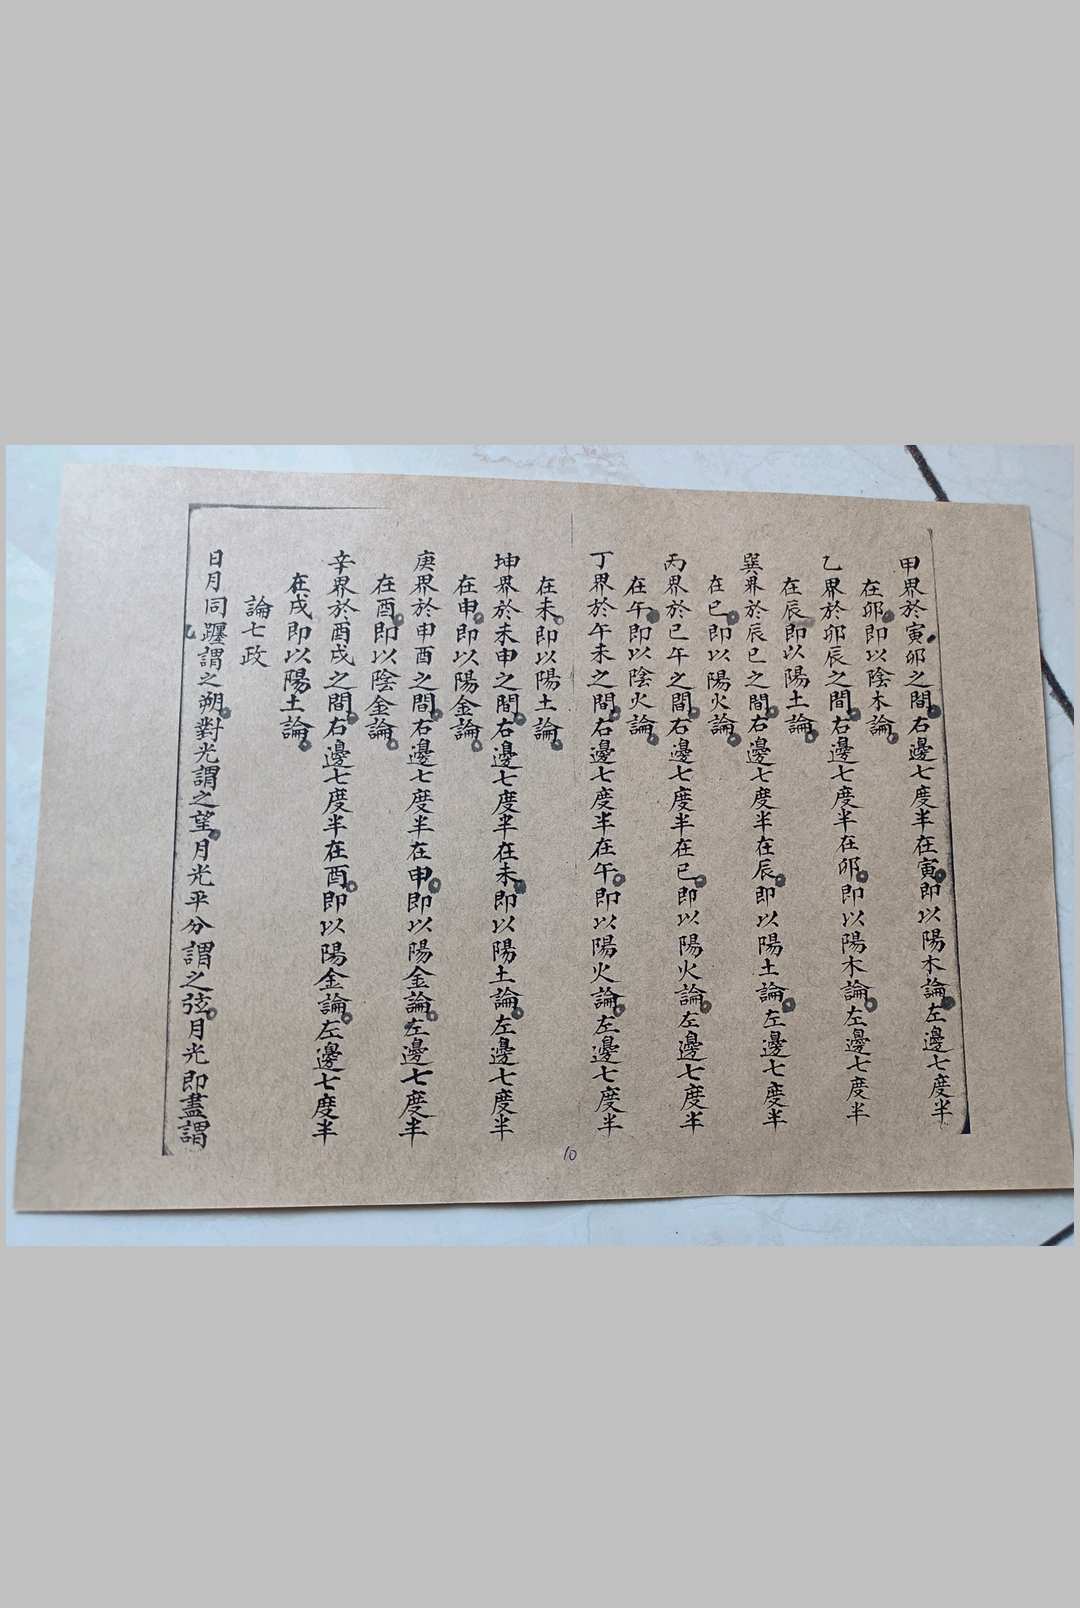 甲界於寅卯之間右邊七度半在寅即以陽木論左邊七度半
在卯即以陰木論
乙界於卯辰之間右邊七度半在卯即以陽木論左邊七度半
在辰即以陽土論
巽界於辰巳之間右邊七度半在辰即以陽土論左邊七度半
在巳即以陽火論
丙界於巳午之間右邊七度半在巳即以陽火論左邊七度半
在午即以陰火論
丁界於午未之間右邊七度半在午即以陽火論左邊七度半
在未即以陽土論
坤界於未申之間右邊七度半在未即以陽土論左邊七度半
在申即以陽金論
庚界於申酉之間右邊七度半在申即以陽金論左邊七度半
在酉即以陰金論
辛界於酉戌之間右邊七度半在酉即以陽金論左邊七度半
在戌即以陽土論
論七政
日月同躔謂之朔對光謂之望月光平分謂之弦月光即盡謂
10